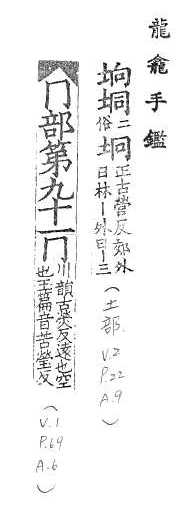 龍龕手鑑
坰垌俗二坰正古營反郊外
曰林一外曰一三
(土部
V.2
P.22
A.9
)
冂部第九十一冂川韻古熒反遠也空
也玉篇音苦營反
(
V.1
P.69
A.6
)